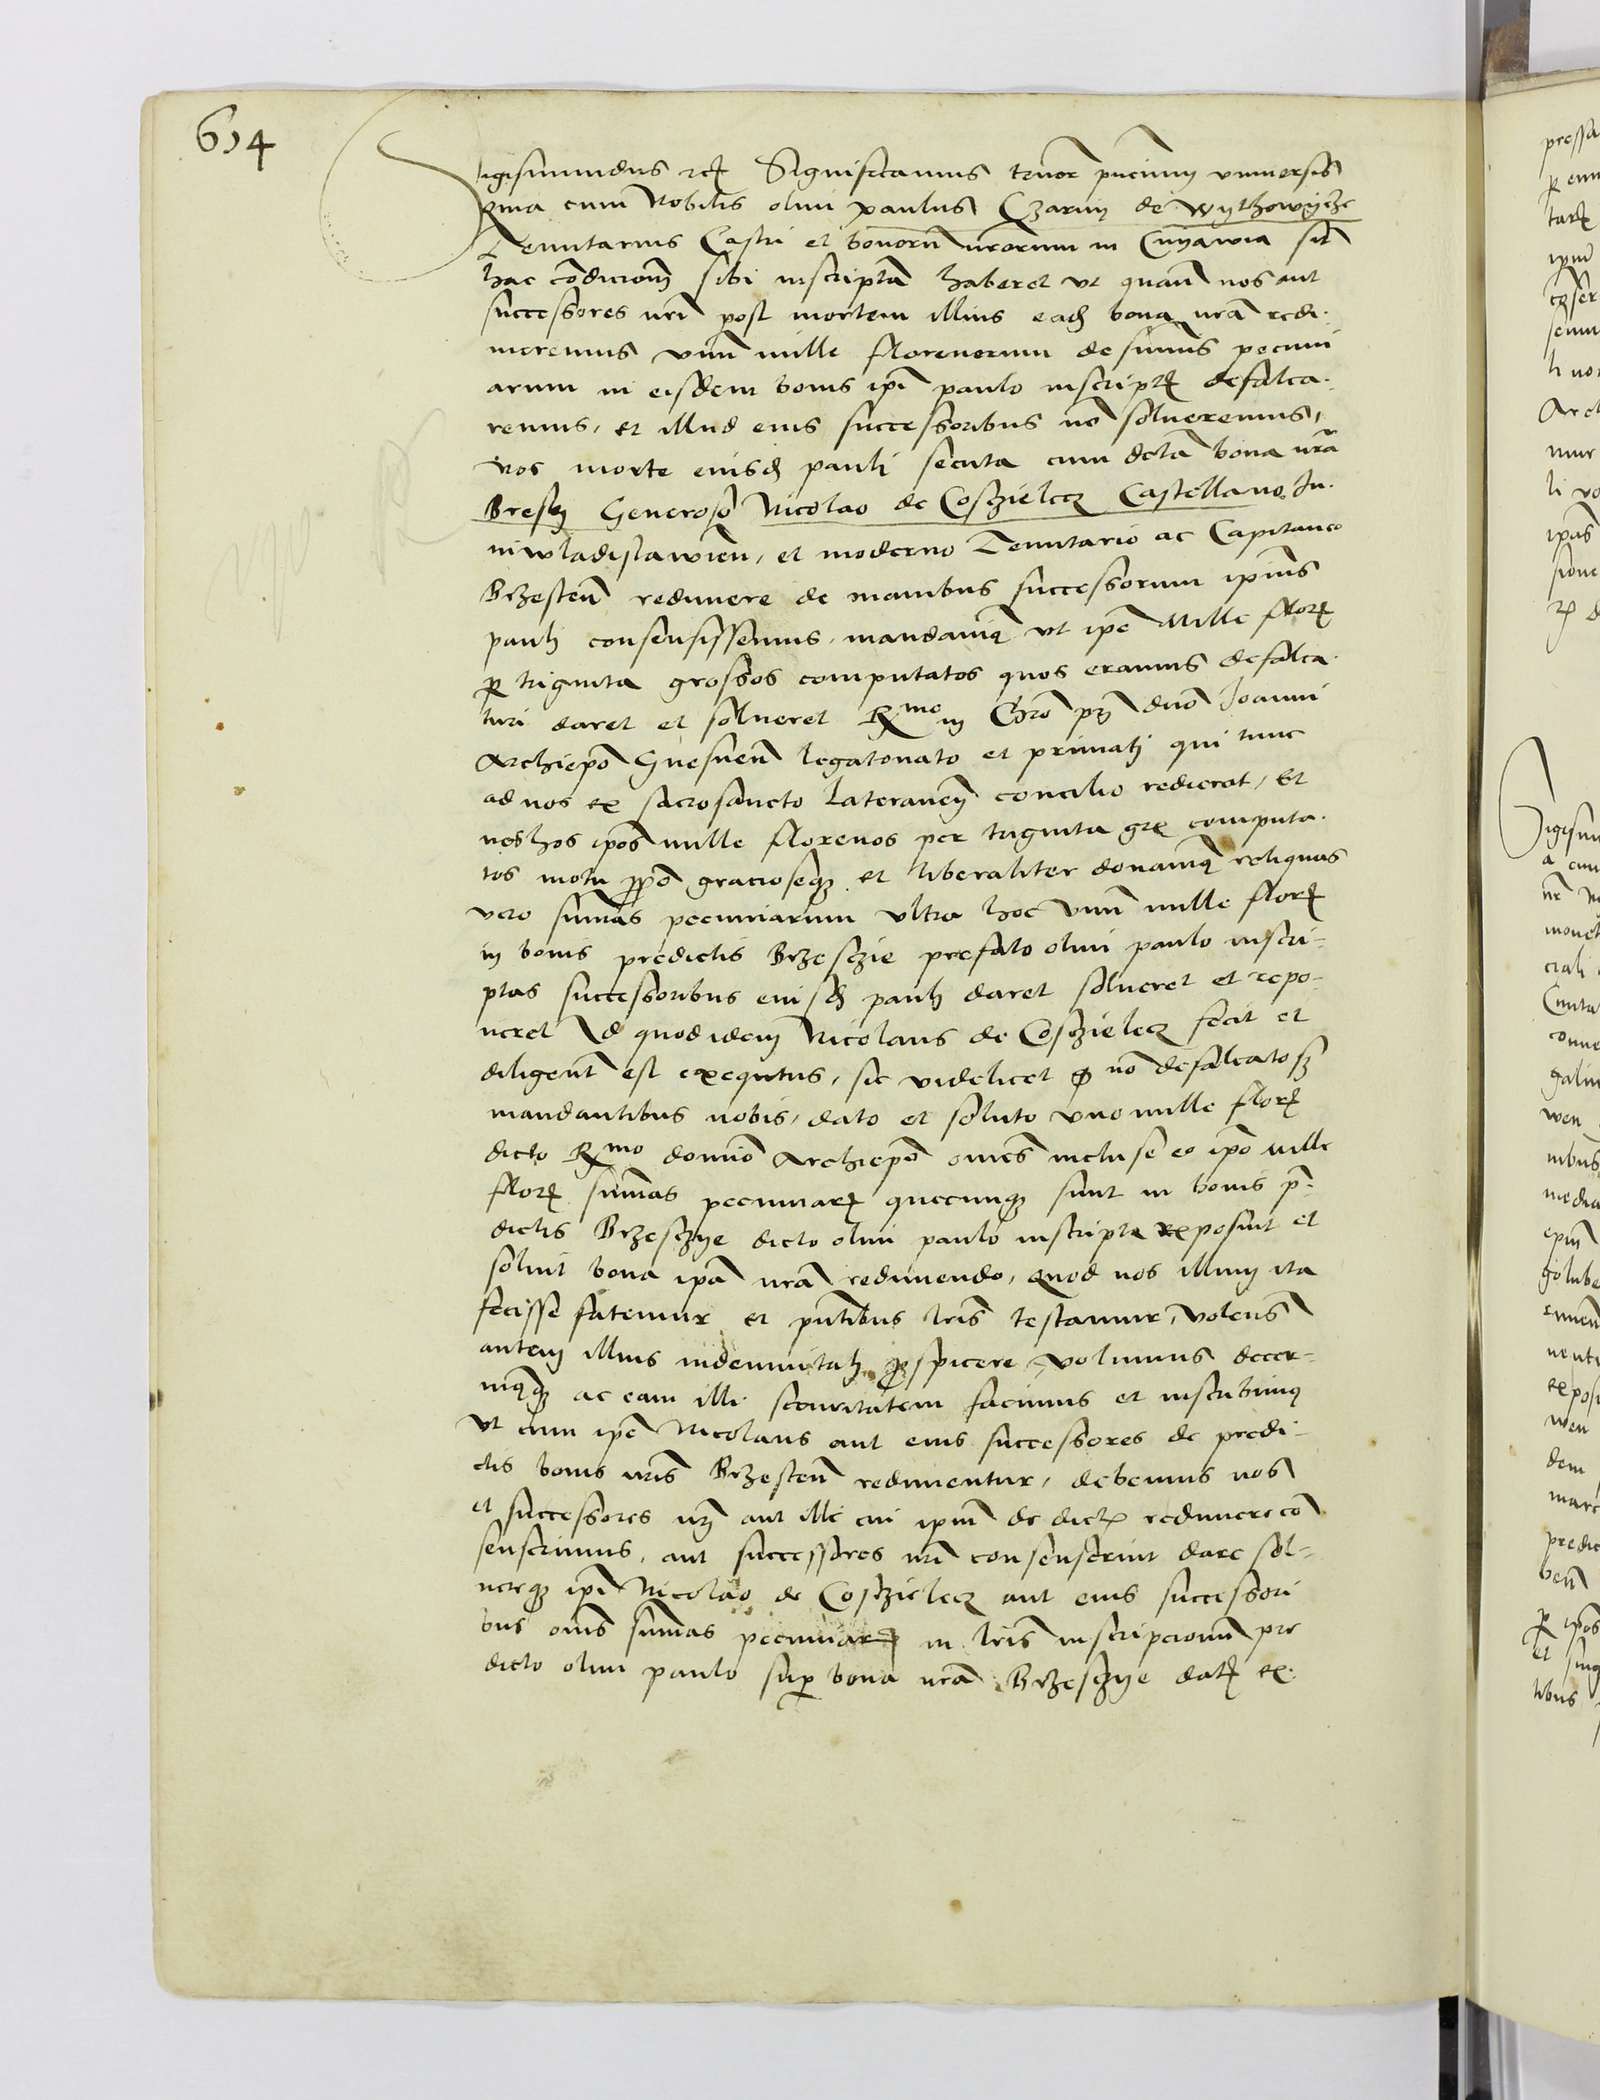 614
Sigismundus etc Significamus tenor pncium vniuersis
Quia cum Nobilis olim paulus Czarny de Wythowycze
Tenutarius Castri et bonorum nrorum in Cuyawia sub
hac condicione sibi inscriptam haberet vt quando nos aut
successores nri post mortem illius eadem bona nra redi-
meremus vnum mille florenorum de summis pecuni
arum in eisdem bonis ipi paulo inscript defalca-
remus, et illud eius successoribus no solueremus,
Nos morte eiusd pauli secuta cum dcta bona nra
Bresten Generoso Nicolao de Cosczielecz Castellano Ju-
niwladislawien, et moderno Tenutario ac Capitaneo
Brzesten redimere de manibus successorum ipius
pauli consensissemus, mandauimus vt ipe Mille flor
per triginta grossos computatos quos eramus defalca-
turi daret et solueret Rmo in Chro pri dno Joanni
Archiepo Gnesnen legatonato et primati qui tunc
ad nos ex sacrosancto Lateranen concilio redierat, Et
nos hos ipos mille florenos per triginta gr computa-
tos motu pprio graciose et liberaliter donauimus reliquas
vero summas pecuniarum vltra hoc vnum mille flor
in bonis predictis Brzesczie prefato olim paulo inscri-
ptas successoribus eiusd pauli daret solueret et repo-
neret Id quod idem Nicolaus de Cosczielecz fecit et
diligenter est exequtus, sic videlicet no defalcatos
mandantibus nobis, dato et soluto vno mille flor
dicto Rmo domino Archiepo omnes incluse eo ipo mille
flor summas pecuniar quecunque sunt in bonis p-
dictis Brzesczye dicto olim paulo inscripta reposuit et
soluit bona ipa nra redimendo, quod nos illum ita
fecisse fatemur et pntibus lris testamur, volens
autem illius indemnitati prospicere, volumus decer-
nimusque ac eam illi securitatem facimus et inscribimus
vt cum ipe Nicolaus aut eius successores de predi-
ctis bonis nris Brzesten redimentur, debemus nos
et successores nri aut ille cui ipm de dict redimere con
senserimus, aut successores nri consenserint dare sol-
uereque ipi Nicolao de Cosczielecz aut eius successori
bus omnes summas pecuniar in lris inscripcionum pre
dicto olim paulo super bona nra Brzesczye dat ex-